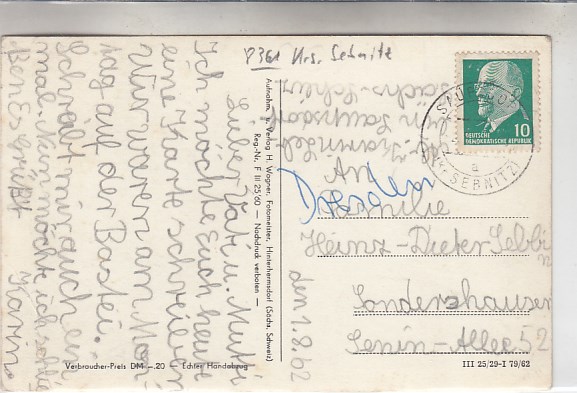 8361 Krs. Sebnitz
den 1.8.62
Lieber Vati u. Mutti
Ich möchte Euch heute
eine Karte schreiben
Wir waren am Mon-
tag auf der Bastei.
Schreibt mir auch ein-
mal. Nun möchte ich schlie-
ßen. Es grüßt
Karin
Aufnahm. u. Verlag H. Wagner, Fotomeister, Hinterhermsdorf (Sächs. Schweiz)
Reg.-Nr. F III 25/60 — Nachdruck verboten —
Verbraucher-Preis DM -.20 — Echter Handabzug
DEUTSCHE
DEMOKRATISCHE REPUBLIK
10
SEBNITZ
a
An
Familie
Dresden
Heinz-Dieter
Sonderzhausen
Lenin-Allee 52
III 25/29-I 79/62